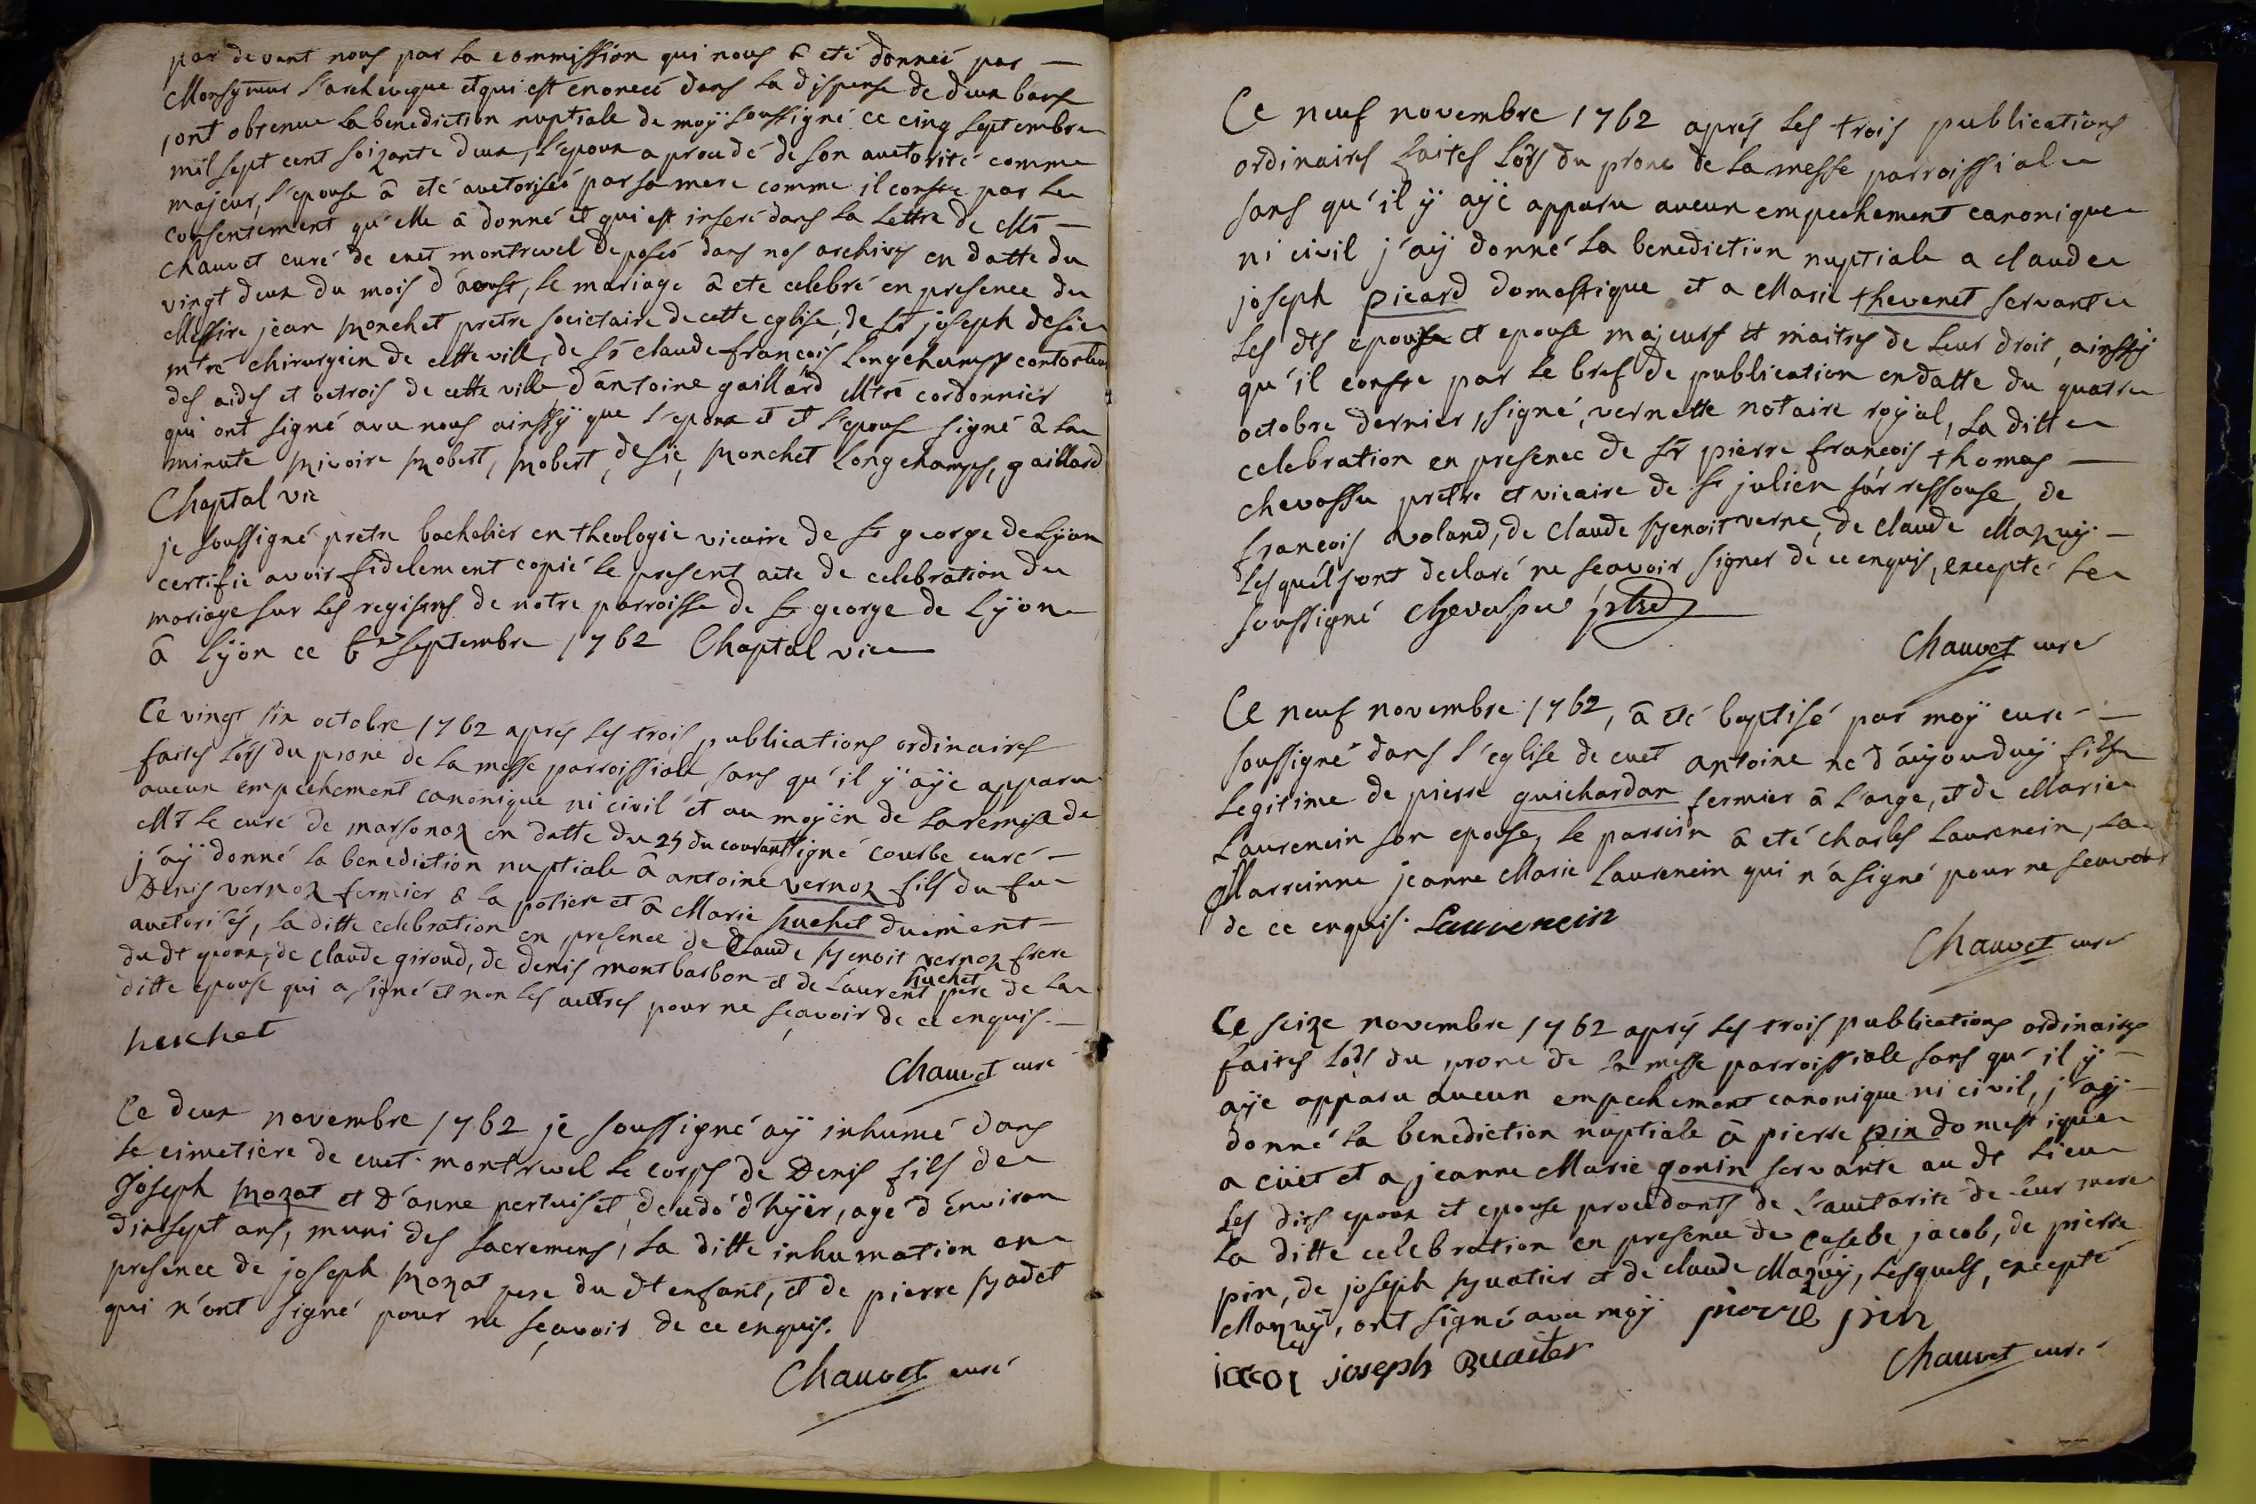 par devant nous par la commission qui nous a eté donneé par
Monsgneur l'archeveque et qui est enoncé dans la dispense de deux bans
ont obtenue la benediction nuptiale de moÿ soussigné ce cinq septembre
mil sept cent soixante deux, l'epoux a procedé de son auctorité comme
majeur, l'epouse â eté auctoriseé par sa mere comme il conste par le
consentement qu'elle â donné et qui est inseré dans la lettre de Mr
chauvet curé de cuet montrevel deposeé dans nos archives en datte du
vingt deux du mois d'aoust, le mariage â ete celebré en presence du
Messire jean monchet pretre societaire de cette eglise, de Sr joseph desie
mtre chirurgien de cette ville, de Sr claude francois Longchamps controlleur
des aides et octrois de cette ville d'antoine gaillard Mtre cordonnier
qui ont signé avec nous ainssÿ que l'epoux et et l'epouse signé â la
minute mivoire mobert, mobert, desie, monchet Longchamps, gaillard
Chaptal vic
je soussigné pretre bachelier en theologie vicaire de St george de Lÿon
certifie avoir fidelement copié le present acte de celebration du
mariage sur les registres de notre parroisse de St george de Lÿon
â Lÿon ce 6 septembre 1762 Chaptal vic
Ce vingt six octobre 1762 aprés les trois publications ordinaires
faites lors du prone de la messe parroissiale, sans qu'il ÿ aÿe apparu
aucun empechement canonique ni civil et au moÿen de la remise de
Mr le curé de marsonaz en datte du 25 du courant signé courbe curé
j'aÿ donné la benediction nuptiale â antoine vernoz fils du fu
Denis vernoz fermier â la potiere et â Marie huchet duement
auctorisés, la ditte celebration en presence de Claude benoit vernoz frere
du dt epoux, de claude giroud, de denis montbarbon et de Laurent huchet pere de la
ditte epouse qui a signé et non les autres pour ne sçavoir de ce enquis.
huchet
Chauvet curé
Ce deux novembre 1762 je soussigné aÿ inhumé dans
le cimetiere de cuet montrevel le corps de Denis fils de
Joseph mozat et d'anne pertuiset, decedé d'hÿer, agé d'environ
dixsept ans, muni des sacremens, la ditte inhumation en
presence de joseph mozat pere du dt enfant, et de pierre badet
qui n'ont signé pour ne sçavoir de ce enquis.
Chauvet curé
Ce neuf novembre 1762 aprés les trois publications
ordinaires faites lors du prone de la messe parroissiale
sans qu'il ÿ aÿe apparu aucun empechement canonique
ni civil j'aÿ donné la benediction nuptiale a claude
joseph picard domestique et a Marie thevenet servante
les dts epoux et epouse majeurs et maitres de leur droit, ainssÿ
qu'il conste par le bref de publication en datte du quatre
octobre dernier, signé, vernette notaire roÿal, la ditte
celebration en presence de Sr pierre francois thomas
chevassu pretre et vicaire de St julien sur ressouse, de
francois voland, de claude benoit verne, de claude Mazuÿ
lesquels ont declaré ne scavoir signer de ce enquis, excepté le
soussigné chevassu ptre
Chauvet curé
Ce neuf novembre 1762, â eté baptisé par moÿ curé
soussigné dans l'eglise de cuet antoine ne d'aujourduÿ fils
legitime de pierre guichardan fermier â l'ange, et de Marie
Laurencin son epouse, le parrein â eté charles Laurencin, la
Marreinne jeanne Marie Laurencin qui n'a signé pour ne scavoir
de ce enquis. Laurencin
Chauvet curé
Ce seize novembre 1762 aprés les trois publications ordinaires
faites lors du prone de la messe parroissiale sans qu'il ÿ
aÿe apparu aucun empechement canonique ni civil, j'aÿ
donné la benediction nuptiale â pierre pin domestique
a cuet et a jeanne Marie gonin servante au dt lieu
les dits epoux et epouse procedants de l'auctorité de leur mere
la ditte celebration en presence de eusebe jacob, de pierre
pin, de joseph buatier et de claude Mazuÿ, lesquels, excepté
Mazuÿ, ont signé avec moÿ pierre pin
joseph Buatier
Chauvet curé